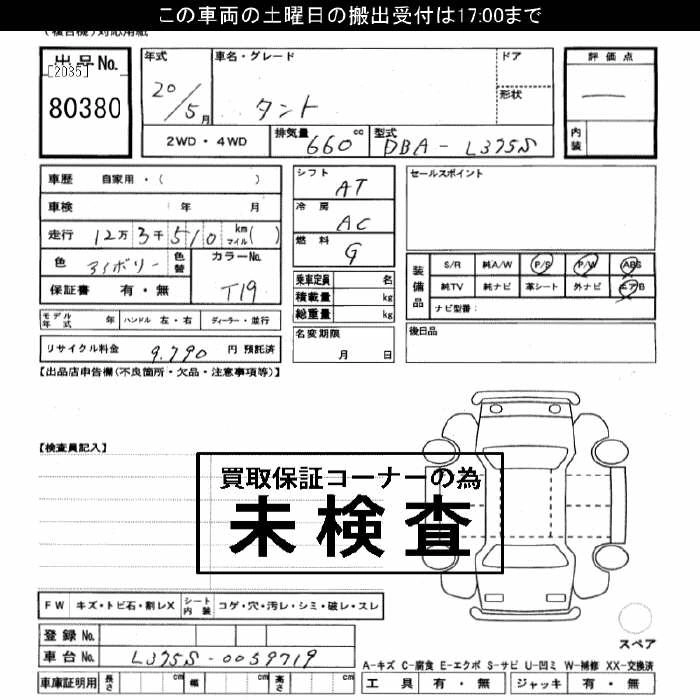 この車両の土曜日の搬出受付は17:00まで
(複合機)対応用紙
出品No.
[2035]
80380
年式
20/5月
車名・グレード
タント
ドア
形状
評価点
—
内装
2WD・4WD
排気量 660 cc
型式 DBA-L375S
車歴 自家用・( )
車検 年 月
走行 12万3千510 km マイル( )
色 アイボリー 色替
カラーNo. T19
保証書 有・無
シフト AT
冷房 AC
燃料 G
乗車定員 名
積載量 kg
総重量 kg
セールスポイント
装備品
S/R 純A/W P/S P/W ABS
純TV 純ナビ 革シート 外ナビ エアB
ナビ型番:
モデル年式 年 ハンドル 左・右 ディーラー・並行
名変期限
月 日
後日品
リサイクル料金 9,790 円 預託済
【出品店申告欄(不良箇所・欠品・注意事項等)】
【検査員記入】
買取保証コーナーの為
未検査
FW キズ・トビ石・割レX シート内装 コゲ・穴・汚レ・シミ・破レ・スレ
登録No.
車台No. L375S-0059719
スペア
A-キズ C-腐食 E-エクボ S-サビ U-凹ミ W-補修 XX-交換済
車庫証明用 長さ cm 幅 cm 高さ cm
工具 有・無 ジャッキ 有・無